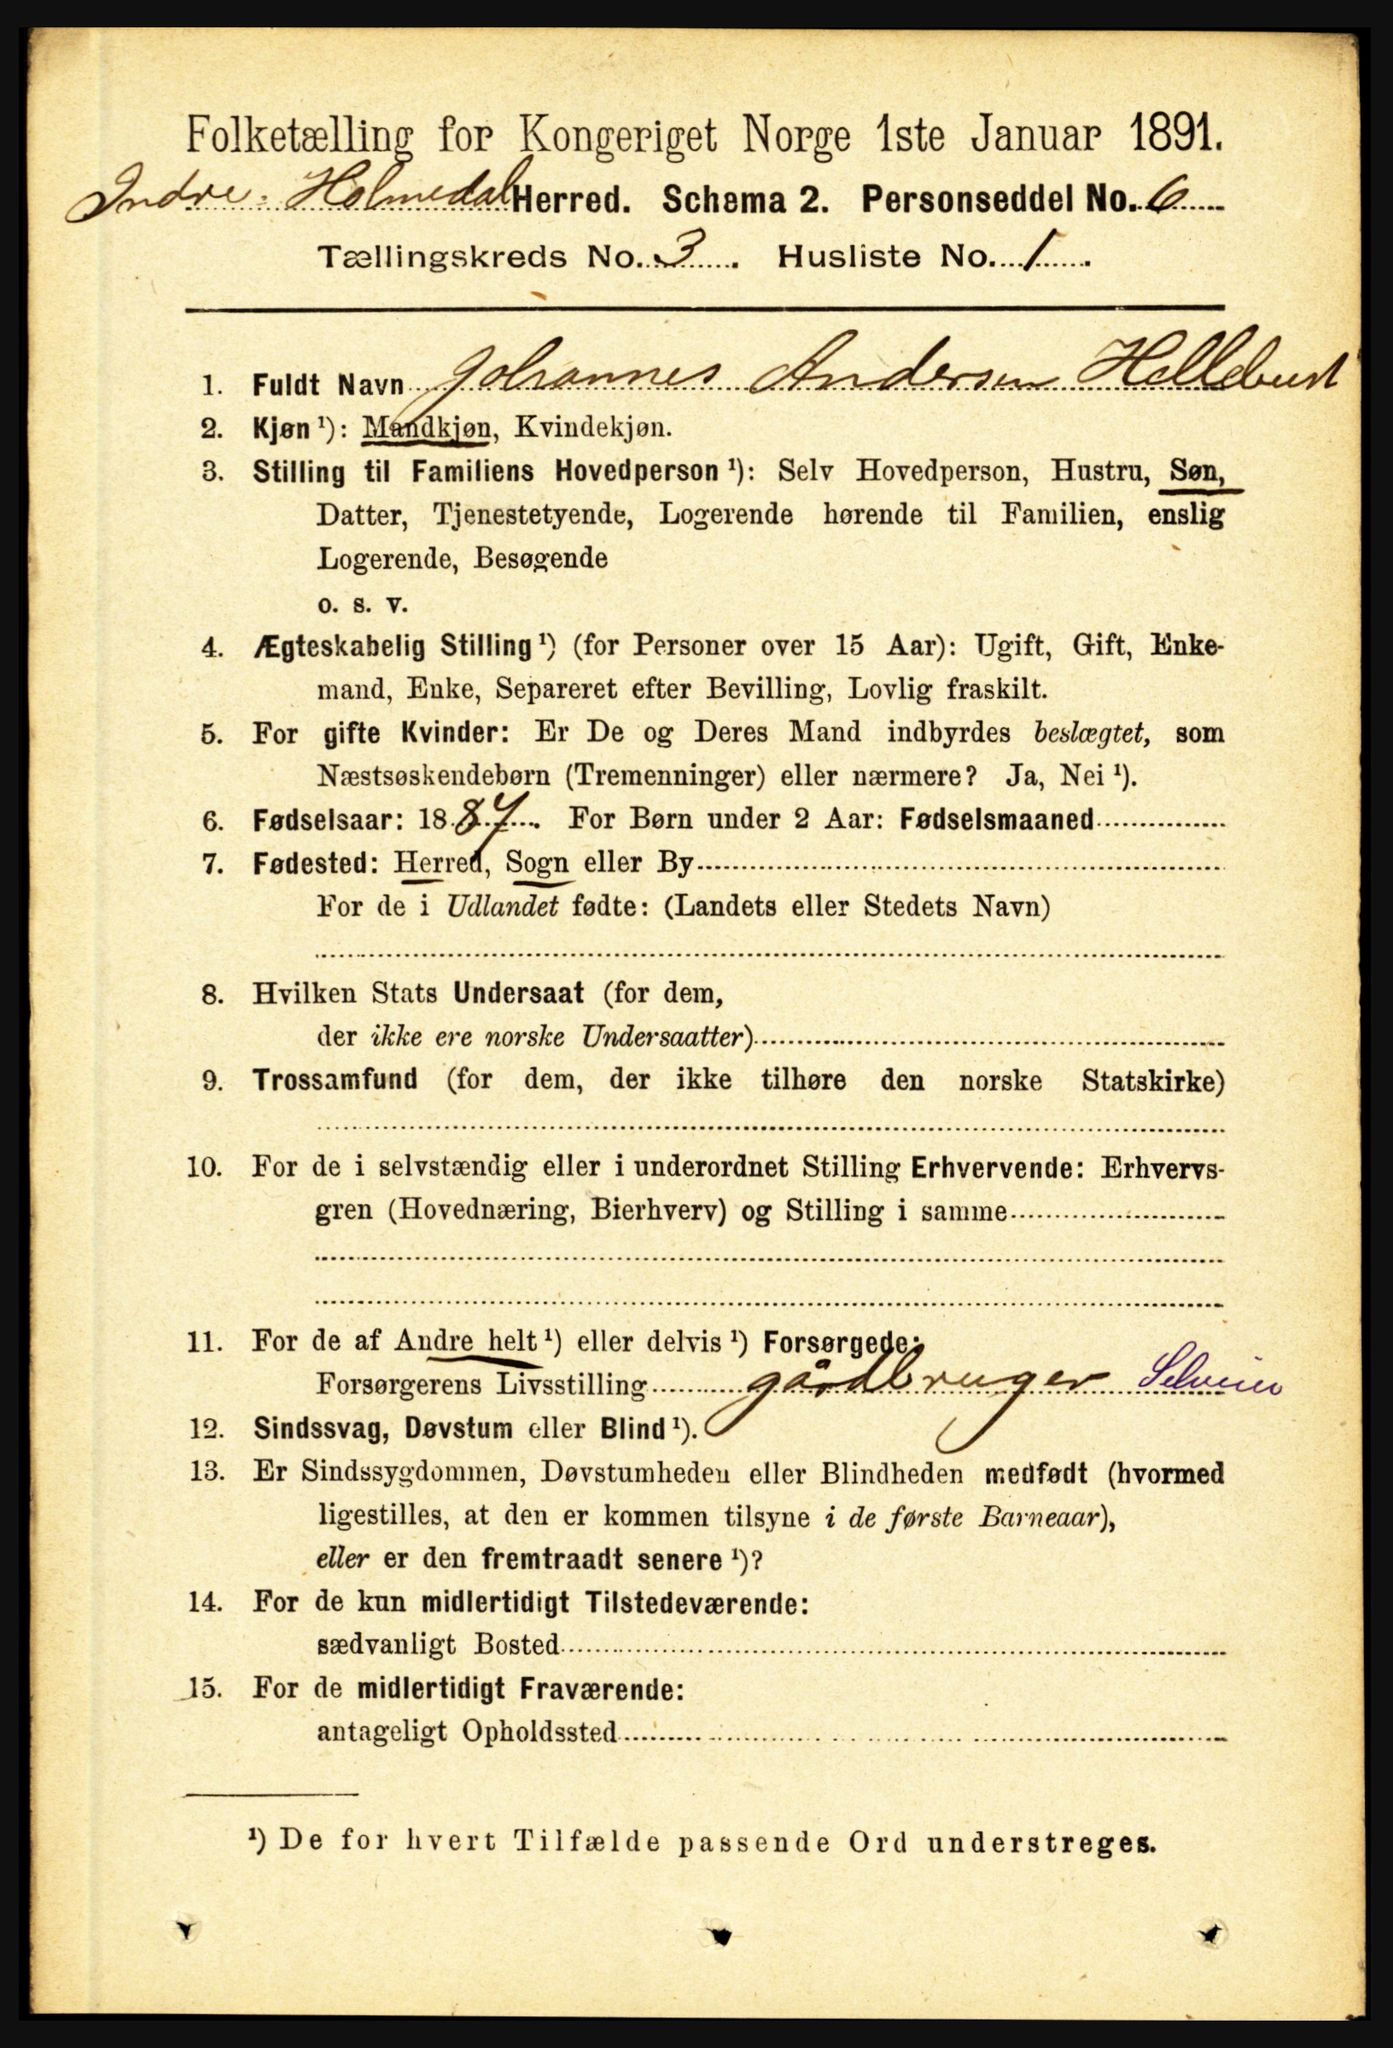 Folketælling for Kongeriget Norge 1ste Januar 1891.
Indre Holmedal Herred. Schema 2. Personseddel No. 6
Tællingskreds No. 3. Husliste No. 1.
1. Fuldt Navn Johannes Andersen Hellebust
2. Kjøn ¹): Mandkjøn, Kvindekjøn.
3. Stilling til Familiens Hovedperson ¹): Selv Hovedperson, Hustru, Søn,
Datter, Tjenestetyende, Logerende hørende til Familien, enslig
Logerende, Besøgende
o. s. v.
4. Ægteskabelig Stilling ¹) (for Personer over 15 Aar): Ugift, Gift, Enke-
mand, Enke, Separeret efter Bevilling, Lovlig fraskilt.
5. For gifte Kvinder: Er De og Deres Mand indbyrdes beslægtet, som
Næstsøskendebørn (Tremenninger) eller nærmere? Ja, Nei ¹).
6. Fødselsaar: 1887. For Børn under 2 Aar: Fødselsmaaned
7. Fødested: Herred, Sogn eller By
For de i Udlandet fødte: (Landets eller Stedets Navn)
8. Hvilken Stats Undersaat (for dem,
der ikke ere norske Undersaatter)
9. Trossamfund (for dem, der ikke tilhøre den norske Statskirke)
10. For de i selvstændig eller i underordnet Stilling Erhvervende: Erhvervs-
gren (Hovednæring, Bierhverv) og Stilling i samme
11. For de af Andre helt ¹) eller delvis ¹) Forsørgede:
Forsørgerens Livsstilling gårdbruger Selveier
12. Sindssvag, Døvstum eller Blind ¹).
13. Er Sindssygdommen, Døvstumheden eller Blindheden medfødt (hvormed
ligestilles, at den er kommen tilsyne i de første Barneaar),
eller er den fremtraadt senere ¹)?
14. For de kun midlertidigt Tilstedeværende:
sædvanligt Bosted
15. For de midlertidigt Fraværende:
antageligt Opholdssted
¹) De for hvert Tilfælde passende Ord understreges.